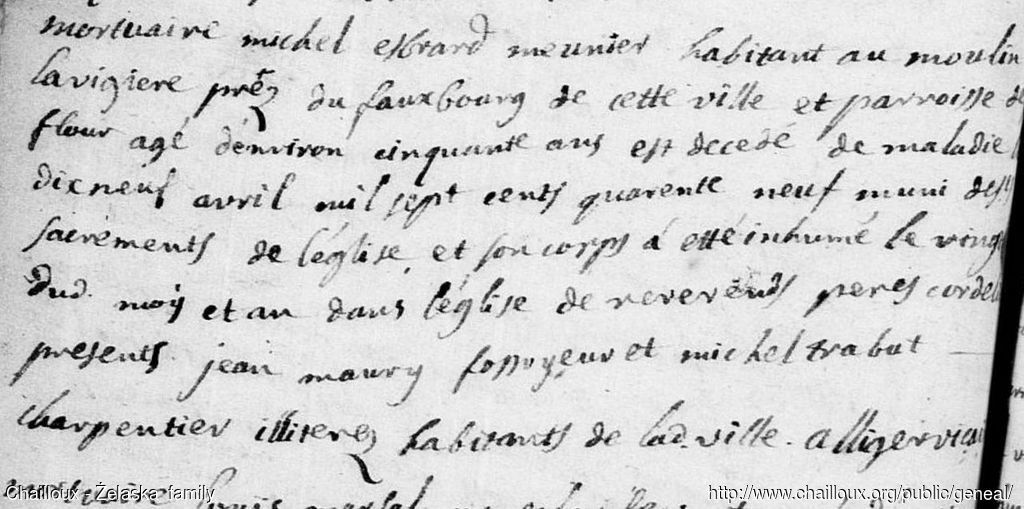 mortuaire michel esbrard meunier habitant au moulin
lavigiere prez du fauxbourg de cette ville et parroisse de
flour agé d'environ cinquante ans est decedé de maladie
dixneuf avril mil sept cents quarente neuf muni des
sacrements de l'église, et son corps à etté inhumé le vingt
dud. mois et an dans l'église de reverends peres cordel
presents jean maury fossoyeur et michel trabut
charpentier illiterez habitants de lad. ville. alligervicaire
mortuaire
Chailloux - Żelaska family
http://www.chailloux.org/public/geneal/